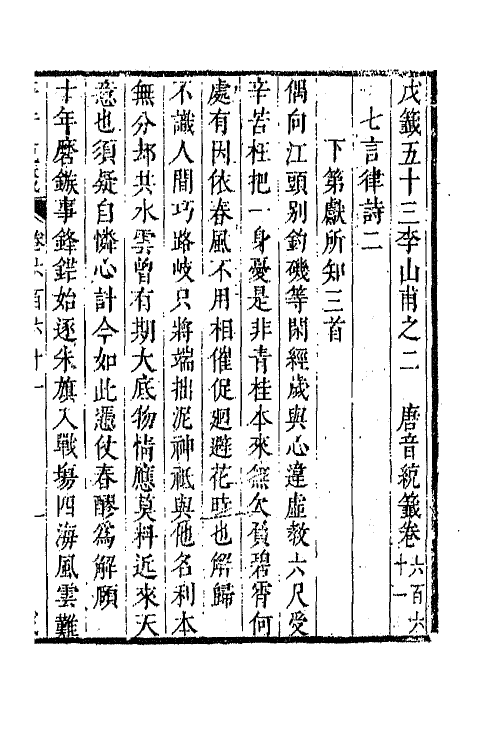 戊籖五十三李山甫之二　唐音統籖卷六百六十一
七言律詩二
下第獻所知三首
偶向江頭别釣磯等閑經歲與心違虛教六尺受
辛苦枉把一身憂是非青桂本來無欠負碧霄何
處有因依春風不用相催促廻避花時也解歸
不識人間巧路岐只將端拙泥神祗與他名利本
無分却共水雲曾有期大底物情應莫料近來天
意也須疑自憐心計今如此憑仗春醪爲解頤
十年磨鏃事鋒鋩始逐朱旗入戰塲四海風雲難
卷六百六十一